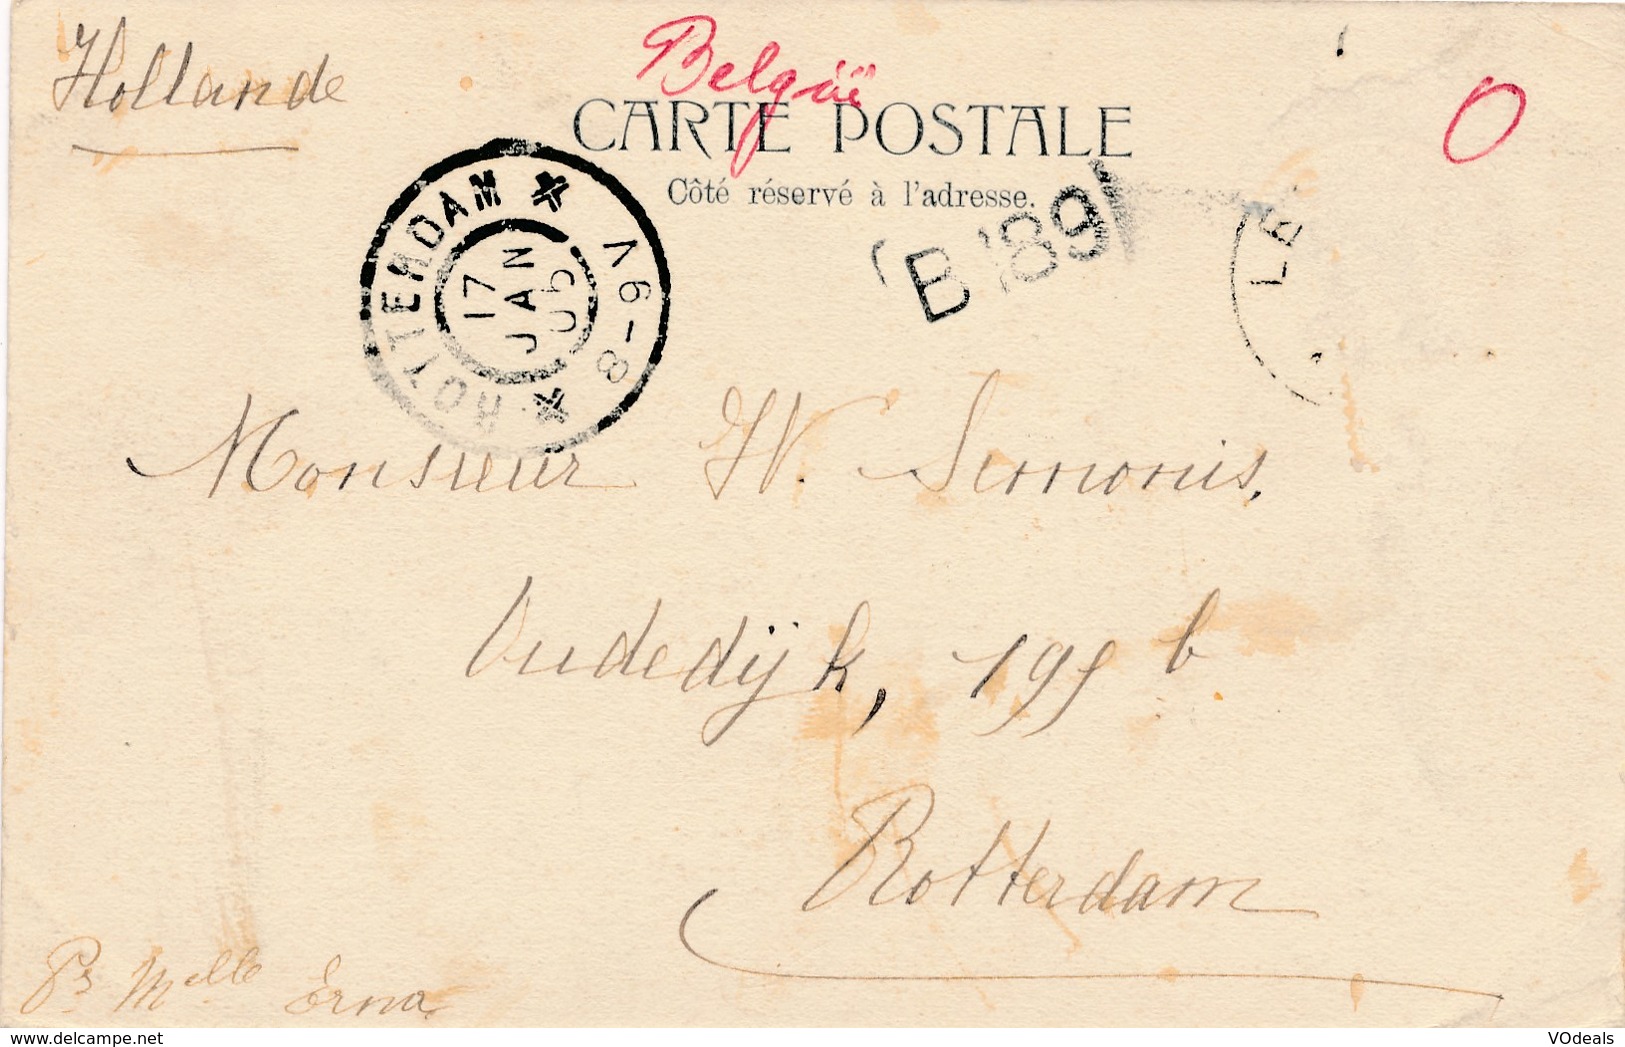 Hollande
België
O
CARTE POSTALE
Côté réservé à l'adresse.
ROTTERDAM
17
JAN
05
8-9V
B'89
LE
Monsieur W. Simonis,
Oudedijk, 199 b
Rotterdam
Pr Melle Erna
delcampe.net
VOdeals